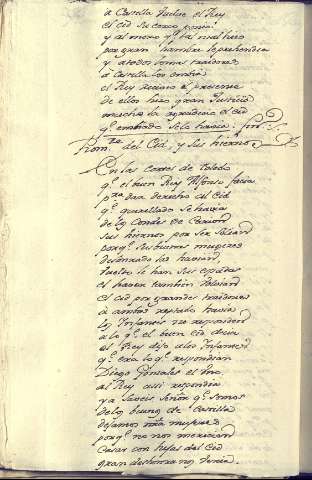 a Castilla buelue el Rey
el Cid su campo ponia
y al moro qe. tal mal hizo
por gran hambre le prehendia
y a todos los mas traidores
a Castilla los embia
el Rey estando a presencia
de ellos hizo gran Justicia
mucho la agradecio el Cid
qe. embiado se lo havia. fin.
Romce. del Cid, y sus hiernos
En las cortes de toledo
qe. el buen Rey Alfonso facia
para dar derecho al Cid
qe. querellado se havia
de los Condes de Carrion
sus hiernos por ser
porqe. sus buenas mugeres
desonrado las havian
buelto le han sus espadas
el haver tambien bolvian
el Cid por grandes traidores
a ambos reptado havia
los Infantes no responden
a lo qe. el buen Cid decia
el Rey dijo a los Infantes
qe. era lo qe. respondian
Diego Gonzales el uno
al Rey assi respondia
ya saveis Señor qe. somos
de los buenos de Castilla
dejamos nras mugeres
porqe. no nos merecian
Casar con hijas del Cid
gran deshonra nos